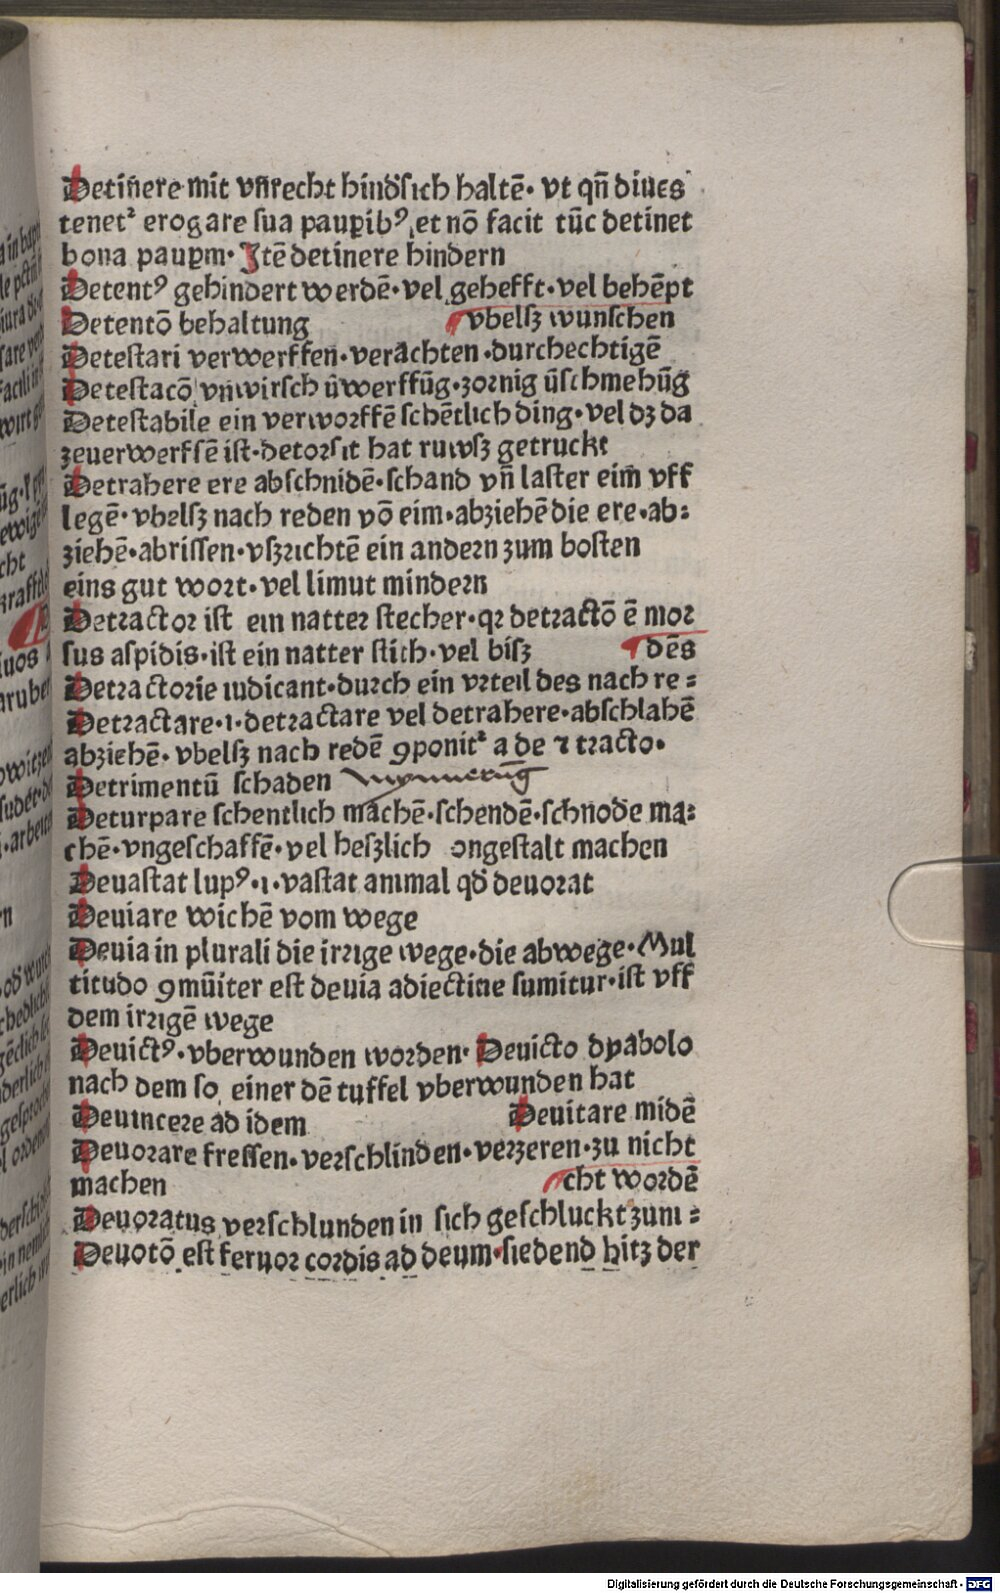 Detinere mit vnrecht hindsich haltē· vt qn̄ diues
tenetᷣ erogare sua pauꝑibꝰ et nō facit tūc detinet
bona pauꝑm· Itē detinere hindern
Detentꝰ gehindert werdē· vel gehefft· vel behēpt
Detentō behaltung vbelsz wunschen
Detestari verwerffen· verachten· durchechtigē
Detestacō vnwirsch v̄werffūg· zornig v̄schmehūg
Detestabile ein verworffē schētlich ding· vel dz da
zeuerwerfsē ist· detorsit hat ruwsz getruckt
Detrahere ere abschnidē· schand vn̄ laster eim̄ vff
legē· vbelsz nach reden vō eim· abziehē die ere· ab⸗
ziehē· abrissen· vszrichtē ein andern zum bosten
eins gut wort· vel limut mindern
Detractor ist ein natter stecher· qꝛ detractō ē mor
sus aspidis· ist ein natter stich· vel bisz dēs
Detractorie iudicant· durch ein vrteil des nach re⸗
Detractare·i· detractare vel detrahere· abschlahē
abziehē· vbelsz nach redē ꝯponitᷣ a de ⁊ tracto·
Detrimentū schaden
Deturpare schentlich machē· schendē· schnode ma⸗
chē· vngeschaffē· vel heszlich ongestalt machen
Deuastat lupꝰ·i· vastat animal qd̄ deuorat
Deuiare wichē vom wege
Deuia in plurali die irrige wege· die abwege· Mul
titudo ꝯmūiter est deuia adiectiue sumitur· ist vff
dem irrigē wege
Deuictꝰ· vberwunden worden· Deuicto dyabolo
nach dem so einer dē tuffel vberwunden hat
Deuincere ad idem Deuitare midē
Deuorare fressen· verschlinden· verzeren· zu nicht
machen cht wordē
Deuoratus verschlunden in sich geschluckt zuni⸗
Deuotō est feruor cordis ad deum· siedend hitz der
Digitalisierung gefördert durch die Deutsche Forschungsgemeinschaft - DFG